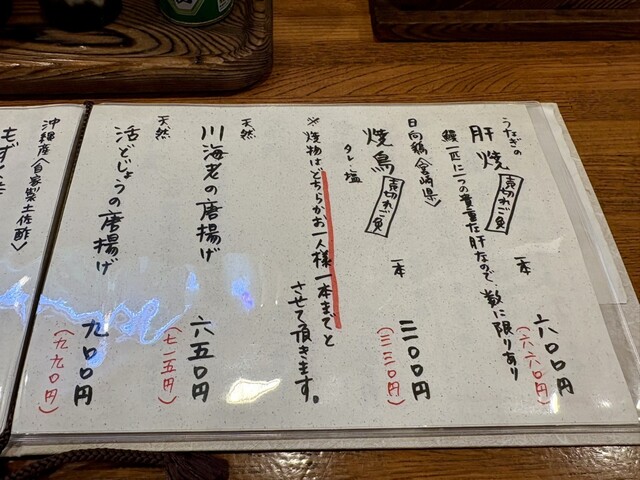 うなぎの
肝焼 売切れご免 一本 六〇〇円
(六六〇円)
鰻一匹に一つの貴重な肝なので、数に限りあり
日向鶏〈宮崎県〉
焼鳥 売切れご免 一本 三〇〇円
(三三〇円)
タレ・塩
※焼物はどちらかお一人様一本までと
させて頂きます。
天然
川海老の唐揚げ 六五〇円
(七一五円)
天然
活どじょうの唐揚げ 九〇〇円
(九九〇円)
沖縄産〈自家製土佐酢〉
もずく